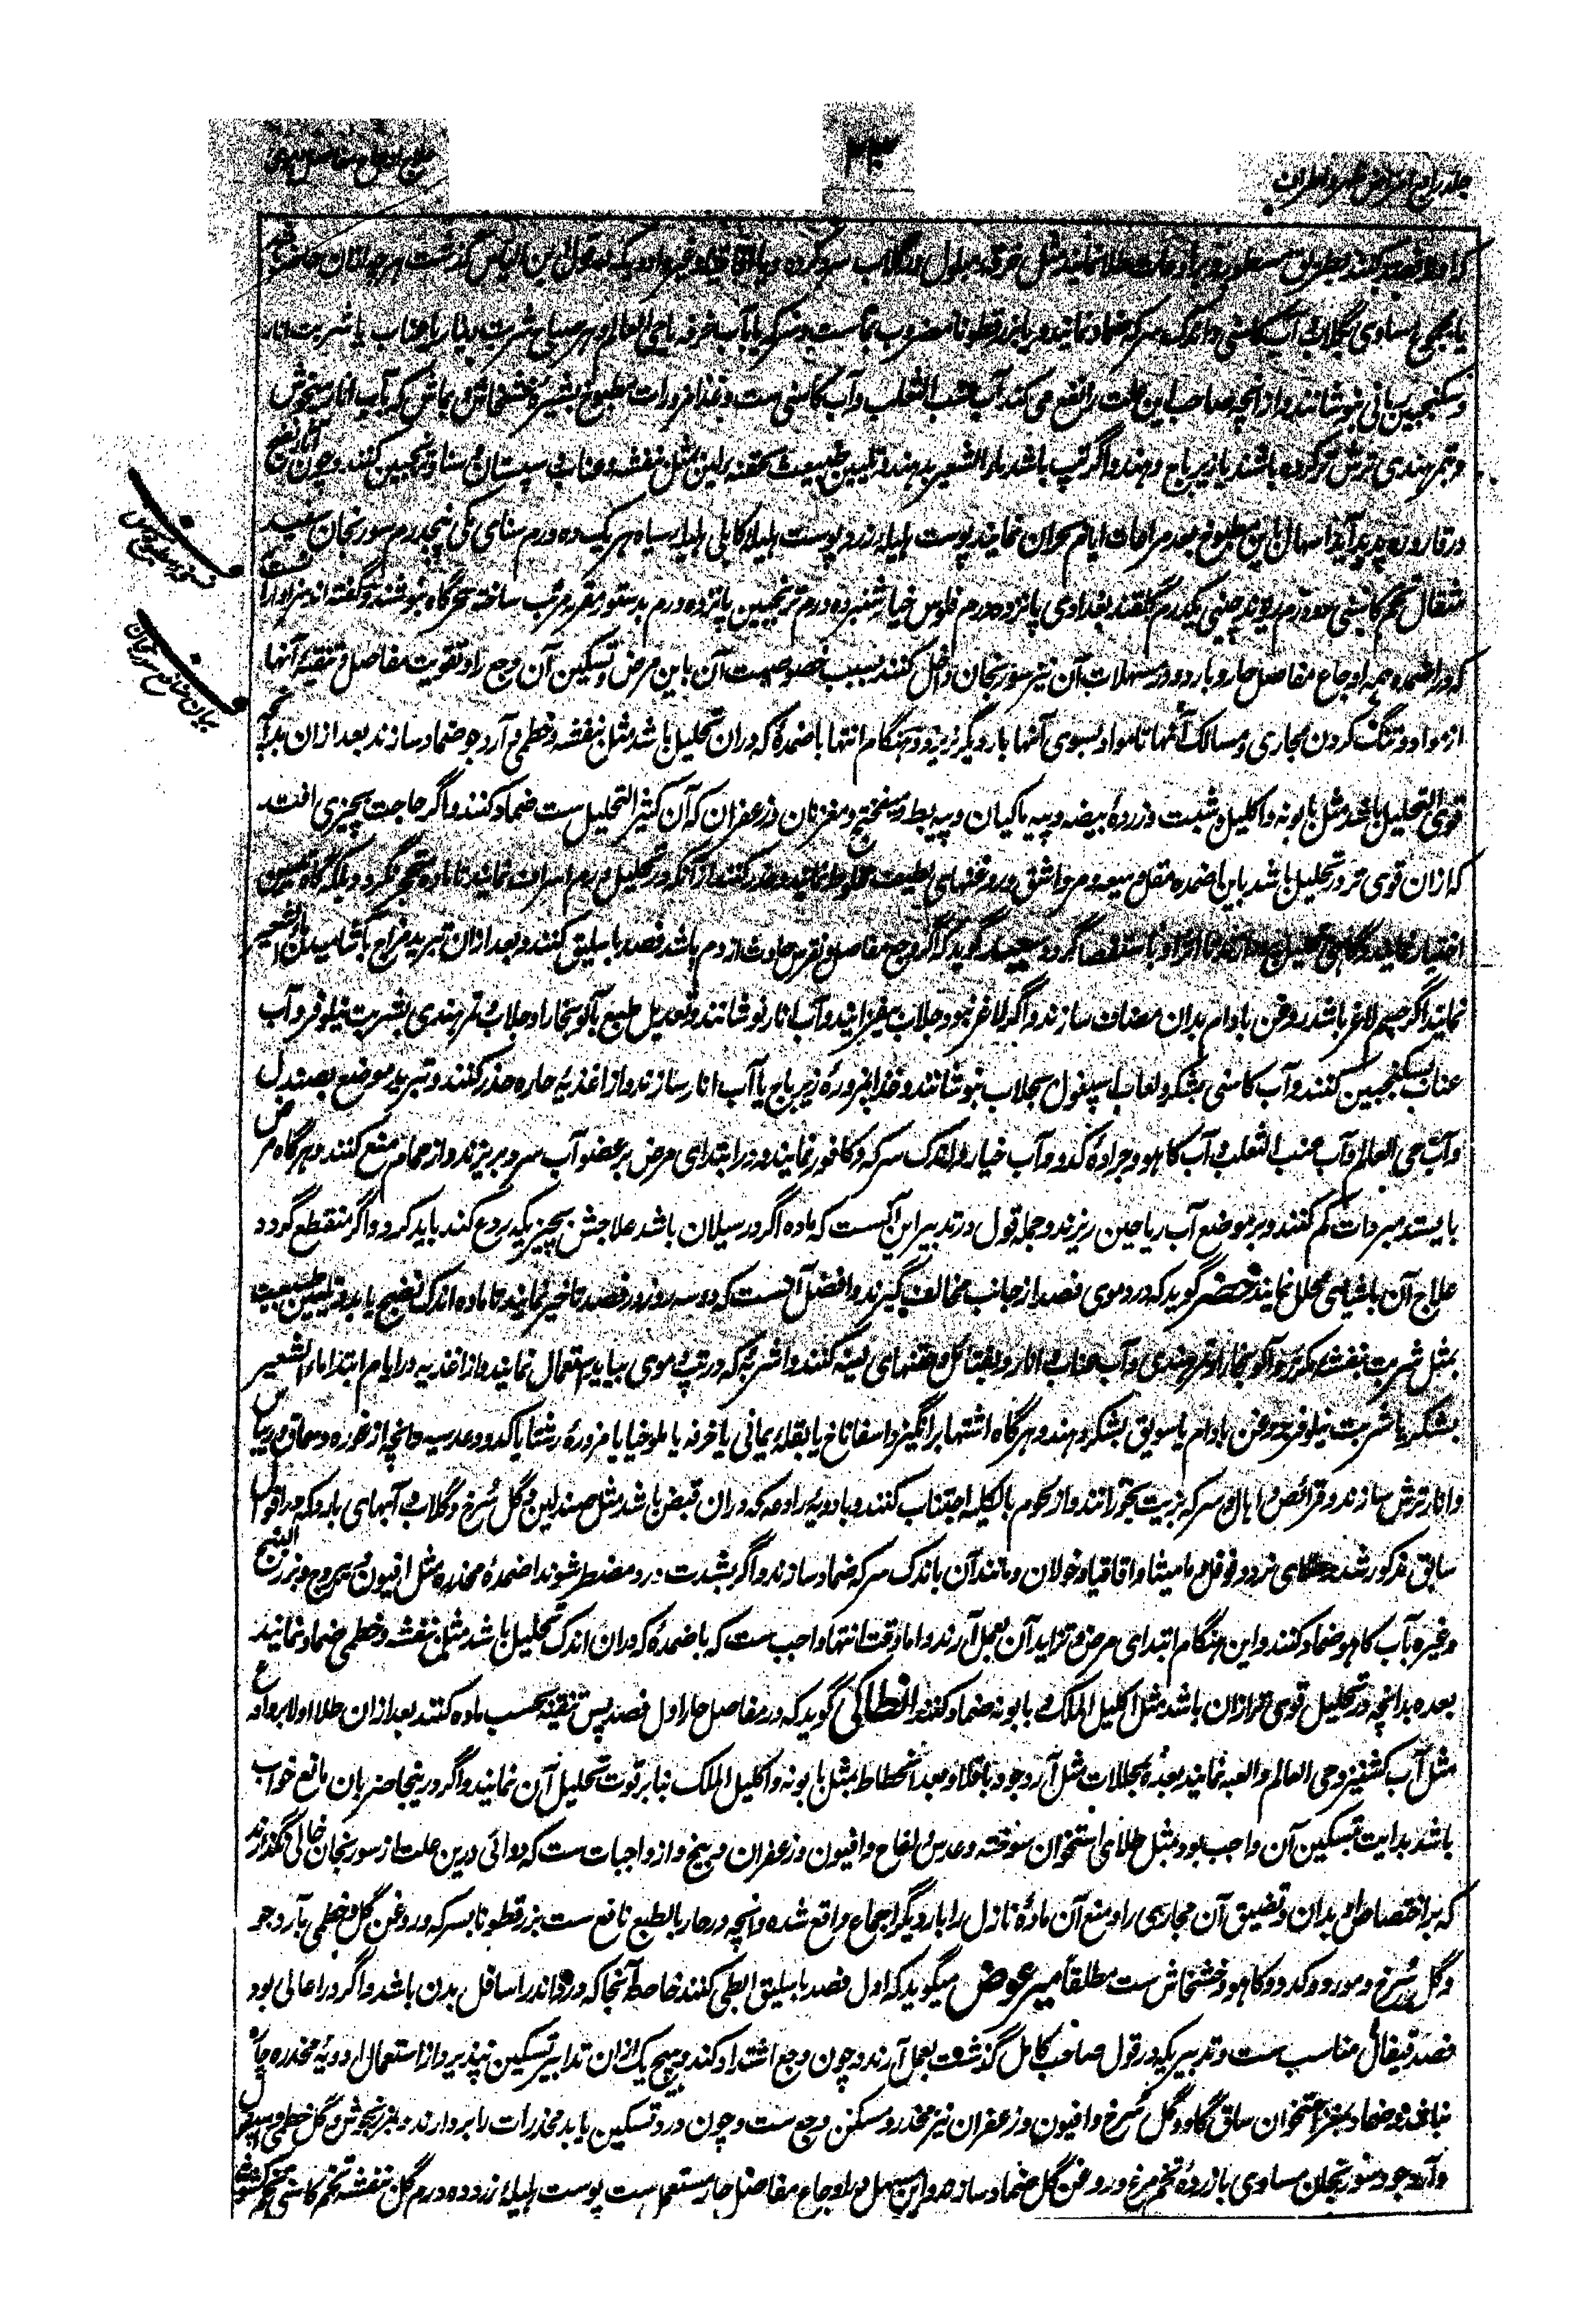 جلد رابع امراض ظهر و اطراف
۲۳
علاج اوجاع مفاصل
یا بجی مساوی بگلاب آب کاسنی و اندک سرکه ضماد نمایند و یا بزرقطونا مضروب بآب و سرکه یا بآب خرفه یا حی العالم هر صباح شربت یا عناب یا شربت انار
و سکنجبین نوشانند و ازانچه صاحب این علت را نفع می کند آب عنب الثعلب و آب کاسنی ست و غذا مزورات مطبوخ بشیره خشخاش و ماش که بآب انار میخوش
و تمر هندی ترش کرده باشند یا زیرباج دهند و اگر تپ باشد ماء الشعیر بدهند و تلیین طبیعت بحقنه لین مثل بنفشه و عناب و سپستان و سنا و ترنجبین کنند و چون آثار نضج
در قاروره پدید آید اسهال باین مطبوخ بعد مراعات ایام بحران نمایند پوست هلیله زرد پوست هلیله کابلی هلیله سیاه هر یک ده درم سنای مکی پنجدرم سورنجان سفید
مثقال تخم کاسنی دو درم ریوند چینی یکدرم گلقند بغدادی پانزده درم فلوس خیارشنبر ده درم ترنجبین پانزده درم بدستور مقرر مرتب ساخته سحرگاه بنوشند و گفته اند سزاوار
که در اضمده همه اوجاع مفاصل حار و بارد و در مسهلات آن نیز سورنجان داخل کنند بسبب خصوصیت آن باین مرض و تسکین آن وجع را و تقویت مفاصل و تنقیه آنها
از مواد و تنگ کردن مجاری و مسالک آنها تا مواد بسوی آنها بار دیگر نریزد و هنگام انتها باضمدهٔ که دران تحلیل باشد مثل بنفشه و خطمی و آرد جو ضماد سازند بعد ازان بدانچه
قوی التحلیل باشد مثل بابونه و اکلیل و شبت و زردهٔ بیضه و پیه ماکیان و پیه بط و میفختج و مغز نان و زعفران که آن کثیر التحلیل ست ضماد کنند و اگر حاجت بچیزی افتد
که ازان قوی تر در تحلیل باشد باین اضمده مقل و میعه و مر و اشق و روغنهای لطیف مخلوط نمایند و حذر کنند ازانکه در تحلیل ورم اسراف نمایند تا ماده متحجر نگردد
گوید که اگر وجع مفاصل و نقرس حادث از دم باشد فصد باسلیق کنند و بعد ازان تبرید مزاج بآشامیدن ماء الشعیر
نمایند اگر جسم لاغر باشد روغن بادام بدان مضاف سازند و اگر لاغر نبود جلاب بیفزایند و آب انار نوشانند و تعدیل طبع بآلو بخارا و جلاب و تمر هندی بشربت نیلوفر و آب
عناب بسکنجبین کنند و آب کاسنی بشکر و لعاب اسپغول بجلاب بنوشانند و غذا مزورهٔ زیرباج یا آب انار سازند و از اغذیهٔ حاره حذر کنند و تبرید موضع بصندل
و آب حی العالم و آب عنب الثعلب و آب کاهو و جرادهٔ کدو و آب خیار و اندک سرکه و کافور نمایند و در ابتدای مرض بر عضو آب سرد بریزند و از حمام منع کنند و هرگاه مرض
بایستد مبردات کم کنند و بر موضع آب ریاحین ریزند و جمله قول در تدبیر این آنست که ماده اگر در سیلان باشد علاجش بچیزیکه ردع کند باید کرد و اگر منقطع گردد
علاج آن باشیای محلل نمایند خضر گوید که در دموی فصد از جانب مخالف گیرند و افضل آنست که دو سه روز در فصد تاخیر نمایند تا ماده اندک نضج یابد و تلیین طبیعت
بمثل شربت بنفشه مکرر و آلو بخارا و تمر هندی و آب عناب و انار و بفتائل و حقنهای لینه کنند و اشربه که در تپ دموی بیاید استعمال نمایند و از اغذیه در ایام ابتدا ماء الشعیر
بشکر یا شربت نیلوفر و روغن بادام یا سویق بشکر دهند و هرگاه اشتها برانگیزد اسفاناخ یا بقله یمانی یا خرفه یا ملوخیا یا مزورهٔ رشتا یا کدو و عدسیه و انچه از غوره و سماق و ریباس
و انار ترش سازند و قرائص و امال و سرکه بزیت بخورانند و از لحوم بالکلیه اجتناب کنند و بادویهٔ رادعه که دران قبض باشد مثل صندلین و گل سرخ و گلاب و آبهای بارد که در اقوال
سابق مذکور شد و طلای فوفل و مامیثا و اقاقیا و خولان و مانند آن باندک سرکه ضماد سازند و اگر بشدت درد مضطر شوند اضمدهٔ مخدره مثل افیون و بیروج و بزرالبنج
و غیره بآب کاهو ضماد کنند و این هنگام ابتدای مرض و تزاید آن بعمل آرند و اما وقت انتها واجب ست که باضمدهٔ که دران اندک تحلیل باشد مثل بنفشه و خطمی ضماد نمایند
بعده بدانچه در تحلیل قوی تر ازان باشد مثل اکلیل الملک و بابونه ضماد کنند انطاکی گوید که در مفاصل حار اول فصد پس تنقیه بحسب ماده کنند بعد ازان طلا اولا بروادع
مثل آب کشنیز و حی العالم و العبه نمایند بعده بمحللات مثل آرد جو و باقلا و بعد انحطاط بمثل بابونه و اکلیل الملک بنابر قوت تحلیل آن نمایند و اگر درینجا ضربان مانع خواب
باشد بدایت بتسکین آن واجب بود بمثل طلای استخوان سوخته و عدس و لفاح و افیون و زعفران و بنج و از واجبات ست که دوائی درین علت از سورنجان خالی نگذارند
که بر اختصاص او بدان و تضییق آن مجاری را و منع آن مادهٔ نازل را بار دیگر اجماع واقع شده و انچه در حار بالطبع نافع ست بزرقطونا بسرکه و روغن گل و خطمی بآرد جو
و گل سرخ و مورد و کدو و کاهو و خشخاش ست مطلقا میر عوض میگوید که اول فصد باسلیق ابطی کنند خاصة آنجا که درد اندر اسافل بدن باشد و اگر در اعالی بود
فصد قیفال مناسب ست و تدبیریکه در قول صاحب کامل گذشت بعمل آرند و چون وجع اشتداد کند و بهیچ یک ازان تدابیر تسکین نپذیرد از استعمال ادویهٔ مخدره چاره
نباشد و ضماد مغز استخوان ساق گاو و گل سرخ و افیون و زعفران نیز مخدر و مسکن وجع ست و چون درد تسکین یابد مخدرات را بردارند و بمرزنجوش و گل خطمی و اسپغول
و آرد جو و سورنجان مساوی با زردهٔ تخم مرغ و روغن گل ضماد سازند و این مسهل در اوجاع مفاصل حار مستعمل ست پوست هلیله زرد ده درم گل بنفشه تخم کاسنی تخم کشوث